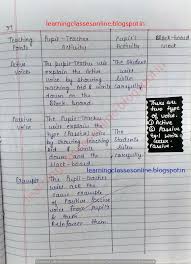 learningclassesonline.blogspot.in
Teaching Points
Pupil-Teacher Activity
Pupil's Activity
Black-board work
Active voice
The Pupil-teacher will
explain the Active
voice by showing
teaching Aid & write
down on the
Black-board.
The Student
will
listen
carefully
There are
two type
of voice.
1) Active
2) Passive
Passive voice
The Pupil-teacher
will explain the
type (Passive) voice
by showing teaching
Aid & write
down and the
black-board.
The
Student
will
listen
carefully
learningclassesonline.blogspot.in
Example
The Pupil-teacher
will ask the
same example
of Passive active
voice from pupil's
& then
Reinforces them.